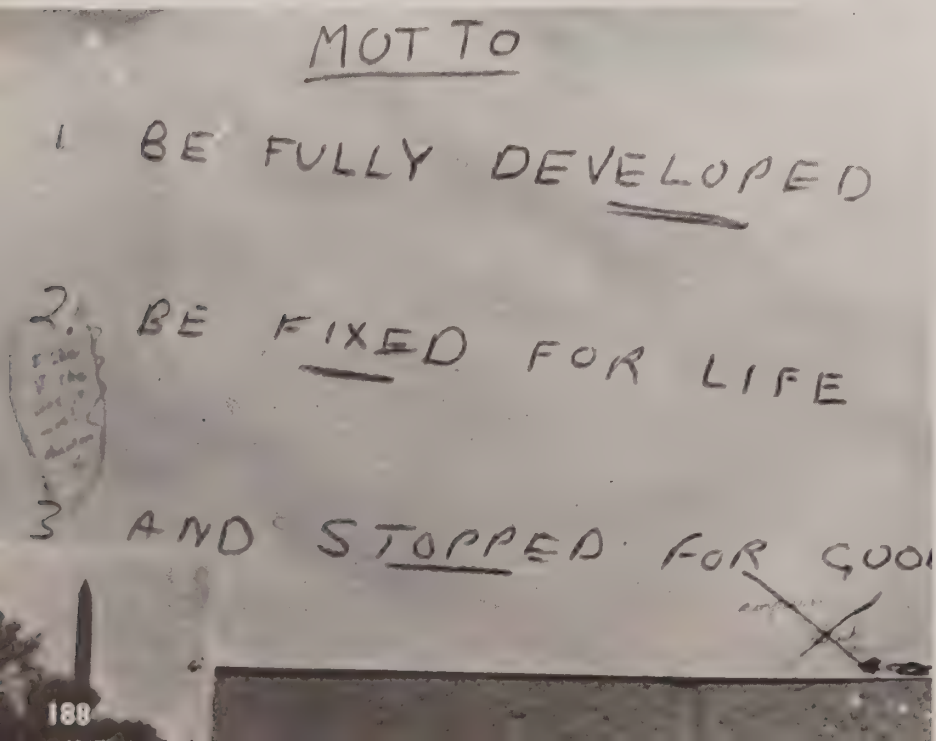 MOTTO
1. BE FULLY DEVELOPED
2. BE FIXED FOR LIFE
3 AND STOPPED FOR GOO
188